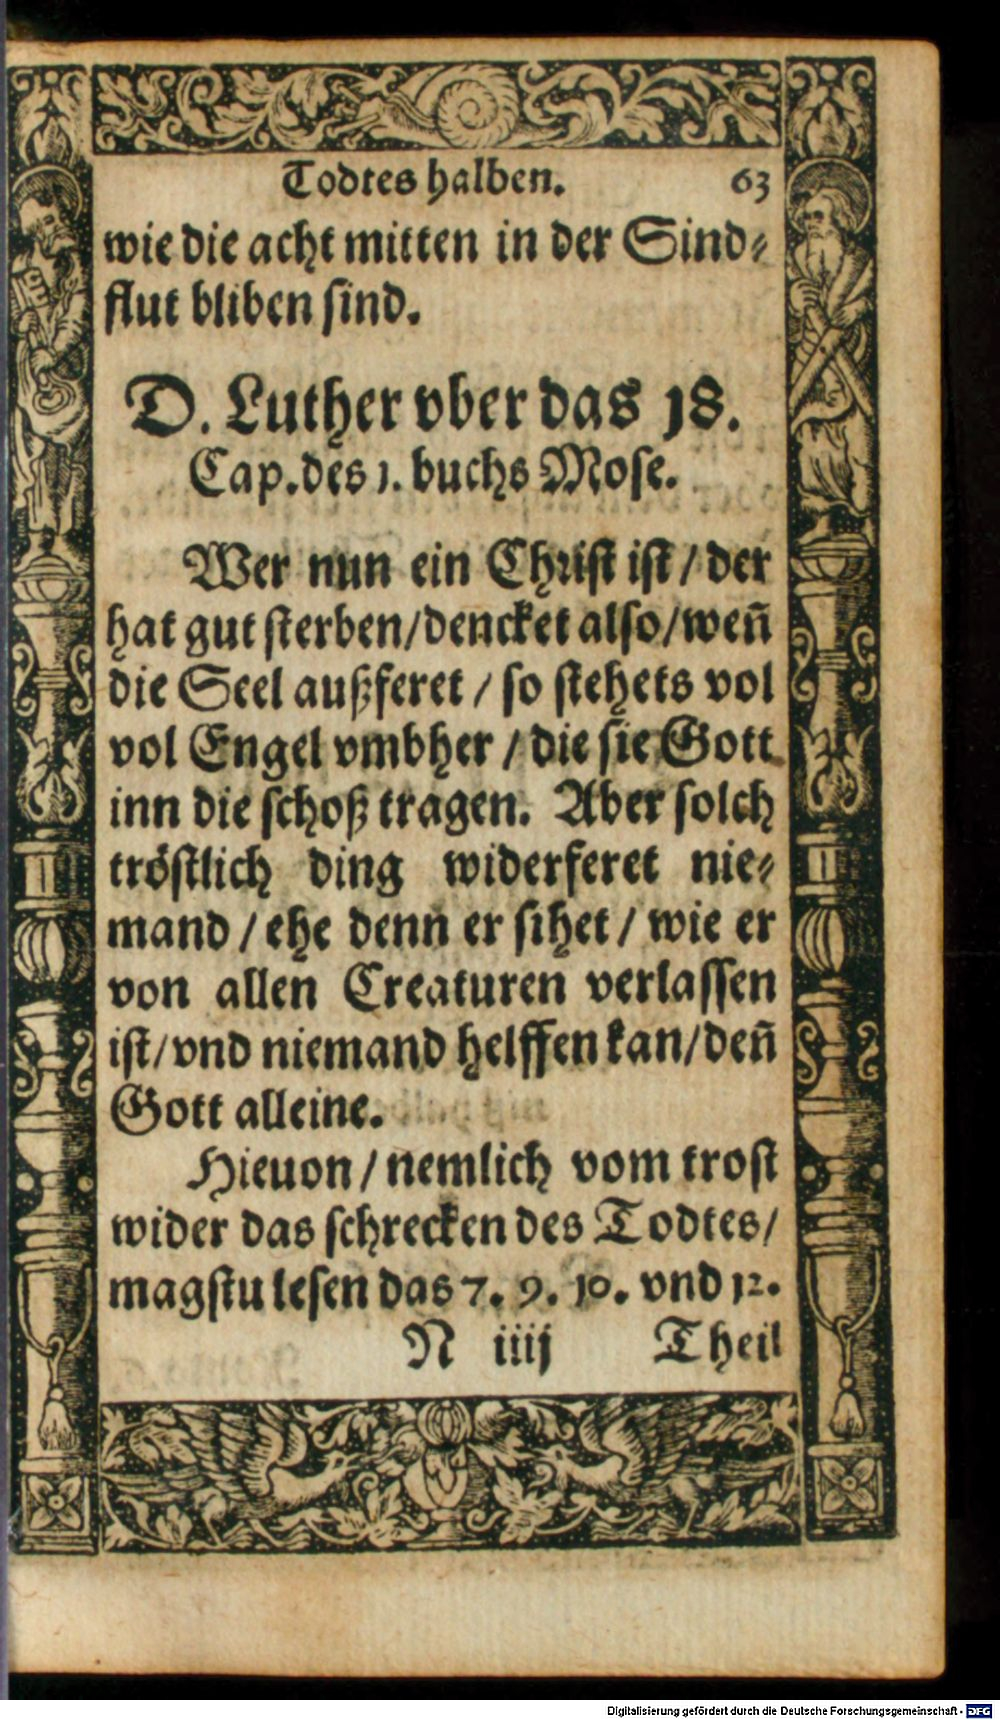 Todtes halben. 63
wie die acht mitten in der Sind⸗
flut bliben sind.
D. Luther vber das 18.
Cap. des 1. buchs Mose.
Wer nun ein Christ ist / der
hat gut sterben/dencket also/weñ
die Seel außferet / so stehets vol
vol Engel vmbher / die sie Gott
inn die schoß tragen. Aber solch
tröstlich ding widerferet nie⸗
mand / ehe denn er sihet / wie er
von allen Creaturen verlassen
ist/vnd niemand helffen kan/deñ
Gott alleine.
Hieuon / nemlich vom trost
wider das schrecken des Todtes/
magstu lesen das 7. 9. 10. vnd 12.
N iiij Theil
Digitalisierung gefördert durch die Deutsche Forschungsgemeinschaft - DFG